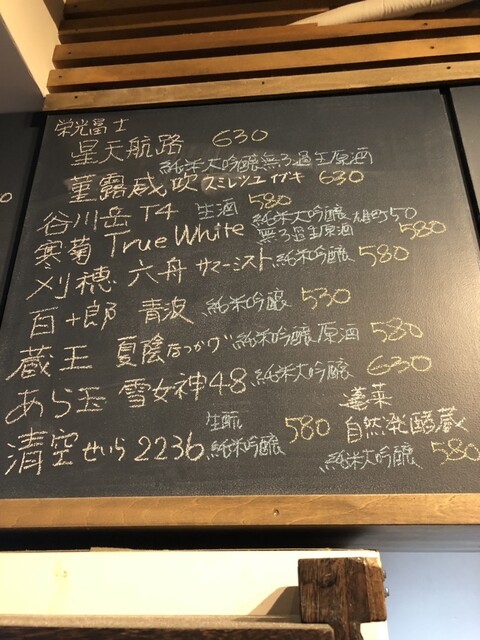 栄光冨士
星天航路 630
純米大吟醸無ろ過生原酒
菫露威吹 スミレツユイブキ 630
谷川岳 T4 生酒 580
寒菊 True White 純米大吟醸 雄町50
無ろ過生原酒 580
刈穂 六舟 サマーミスト 純米吟醸 580
百十郎 青波 純米吟醸 530
蔵王 夏陰なつかげ 純米吟醸原酒 580
あら玉 雪女神48 純米大吟醸 630
清空 せいら 2236 生酛
純米吟醸 580
蓬莱
自然発酵蔵
純米大吟醸 580